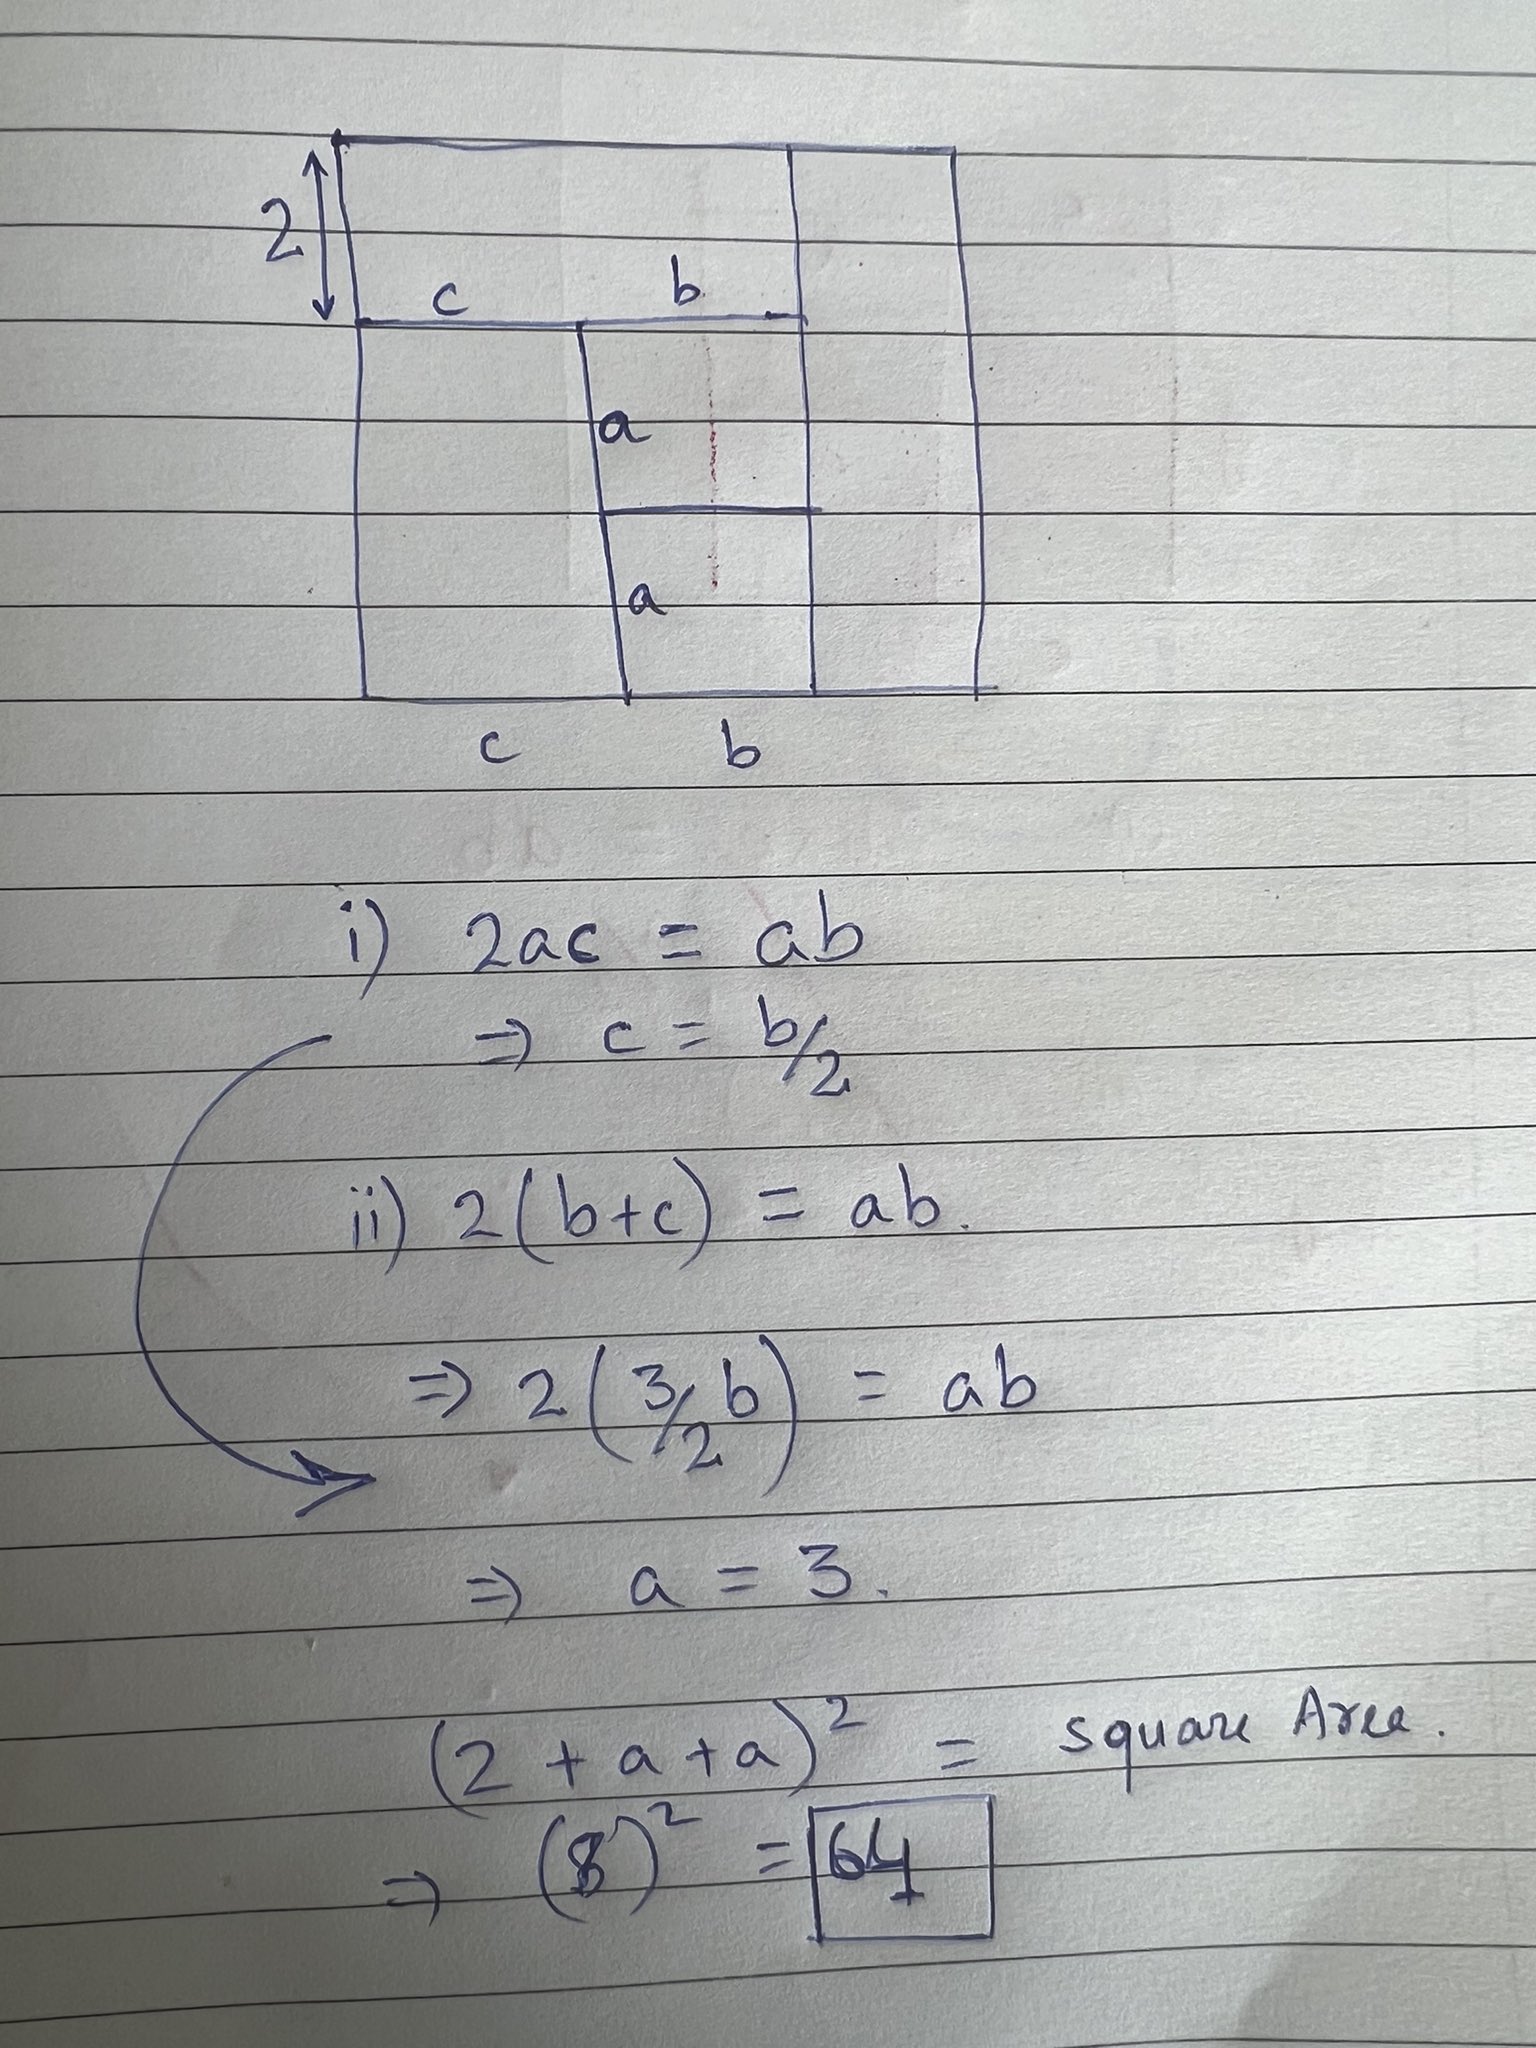 2
c b
a
a
c b
i) 2ac = ab
⇒ c = b/2
ii) 2(b+c) = ab.
⇒ 2(3/2 b) = ab
⇒ a = 3.
(2 + a + a)² = square Area.
⇒ (8)² = 64